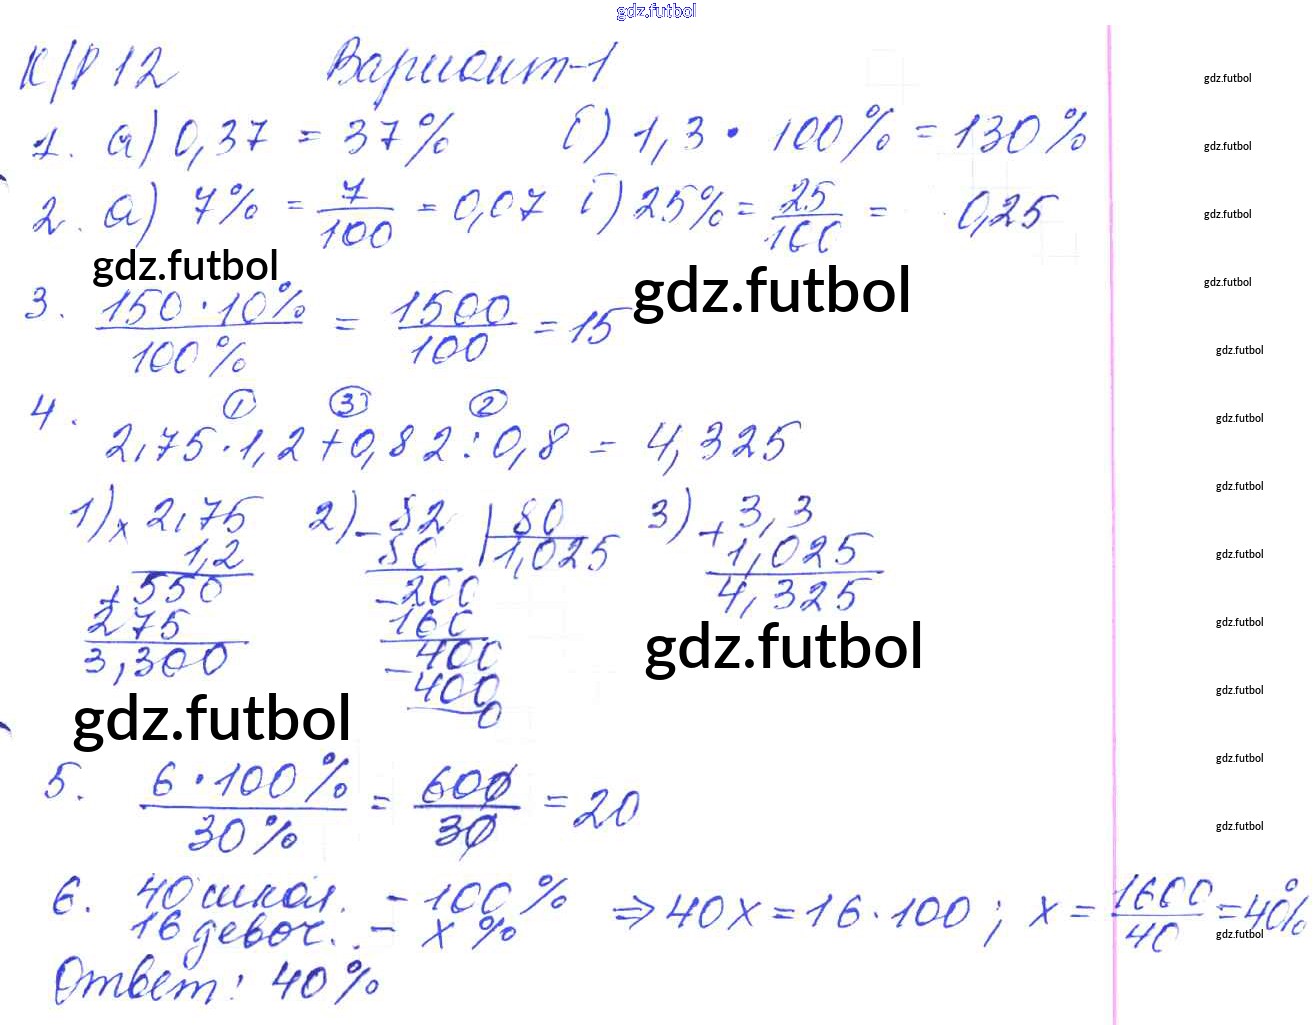 gdz.futbol
К/Р 12 Вариант-1
gdz.futbol
1. а) 0,37 = 37% б) 1,3 • 100% = 130%
gdz.futbol
2. а) 7% = 7/100 = 0,07 б) 25% = 25/100 = 0,25
gdz.futbol
gdz.futbol gdz.futbol
gdz.futbol
3. 150 · 10% / 100% = 1500/100 = 15
gdz.futbol
4. ① ③ ②
gdz.futbol
2,75 · 1,2 + 0,82 : 0,8 = 4,325
gdz.futbol
1) × 2,75 2) - 82 | 80 3) + 3,3
1,2 80 1,025 1,025
gdz.futbol
+ 550 - 200 4,325
275 160
gdz.futbol
3,300 - 400 gdz.futbol
400
gdz.futbol
gdz.futbol 0
gdz.futbol
5. 6 · 100% / 30% = 600/30 = 20
gdz.futbol
6. 40 школ. - 100% ⇒ 40x = 16 · 100; x = 1600/40 = 40%
16 девоч. - x%
gdz.futbol
Ответ: 40%